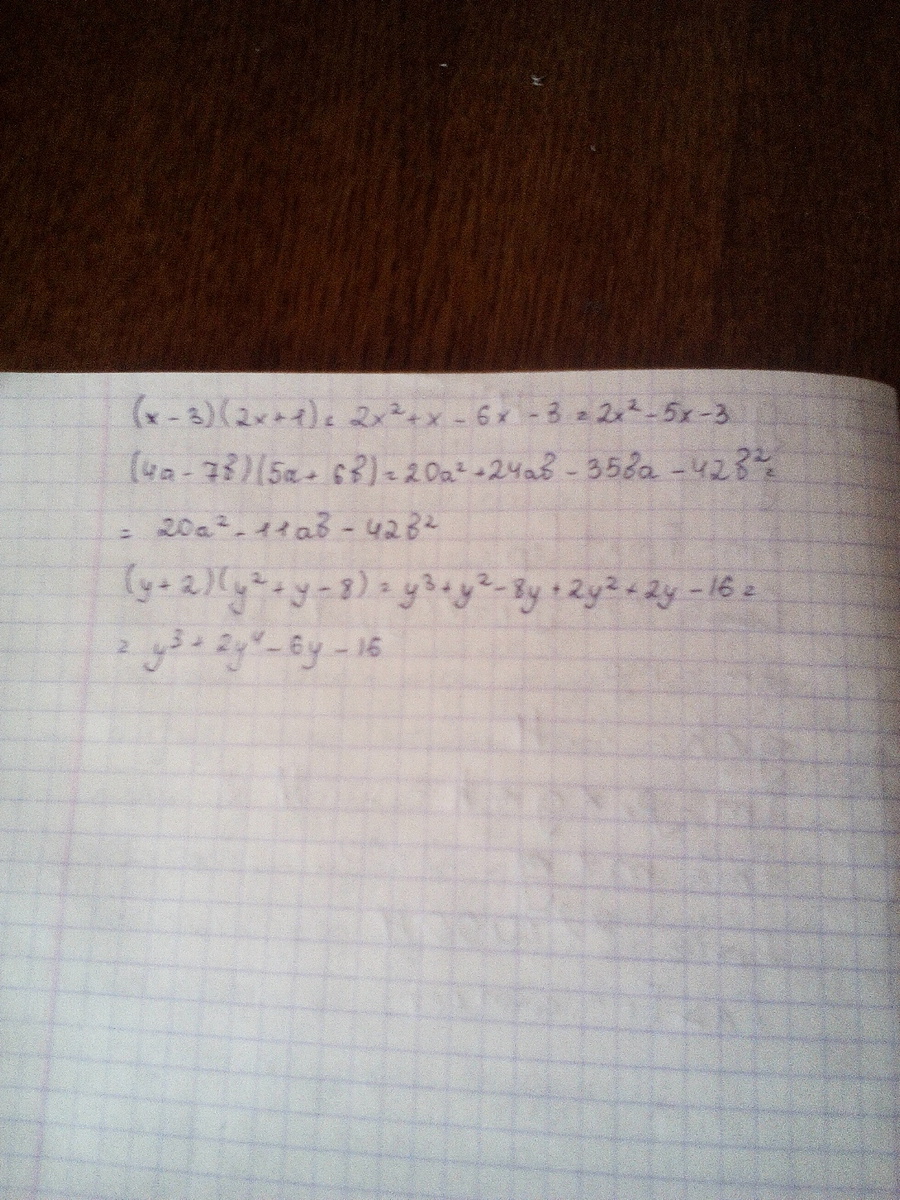 (x - 3)(2x + 1) = 2x² + x - 6x - 3 = 2x² - 5x - 3
(4a - 7b)(5a + 6b) = 20a² + 24ab - 35ba - 42b² =
= 20a² - 11ab - 42b²
(y + 2)(y² + y - 8) = y³ + y² - 8y + 2y² + 2y - 16 =
= y³ + 2y⁴ - 6y - 16